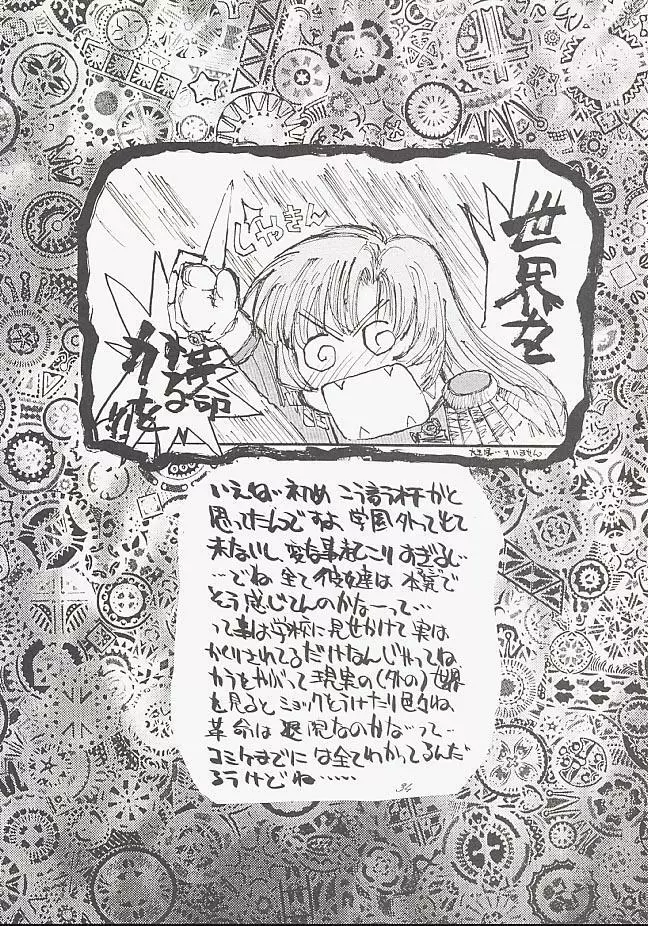 世界を
じゃきん
革命
する
力を
大きぼ…すいません
いえね 初め こう言う所かと
思ってたんですよ 学園外って出て
来ないし 変な事起こりすぎるし…
…でね 全て彼女達は 本気で
そう感じてんのかなーって…
って事は学校に見せかけて実は
かくりされてるだけなんじゃってね
カラをやぶって現実の(外の)世界
を見ると ショックをうけたり 色々ね
革命は 退院なのかなって…
コミケまでには全てわかってるんだ
ろうけどね……
34